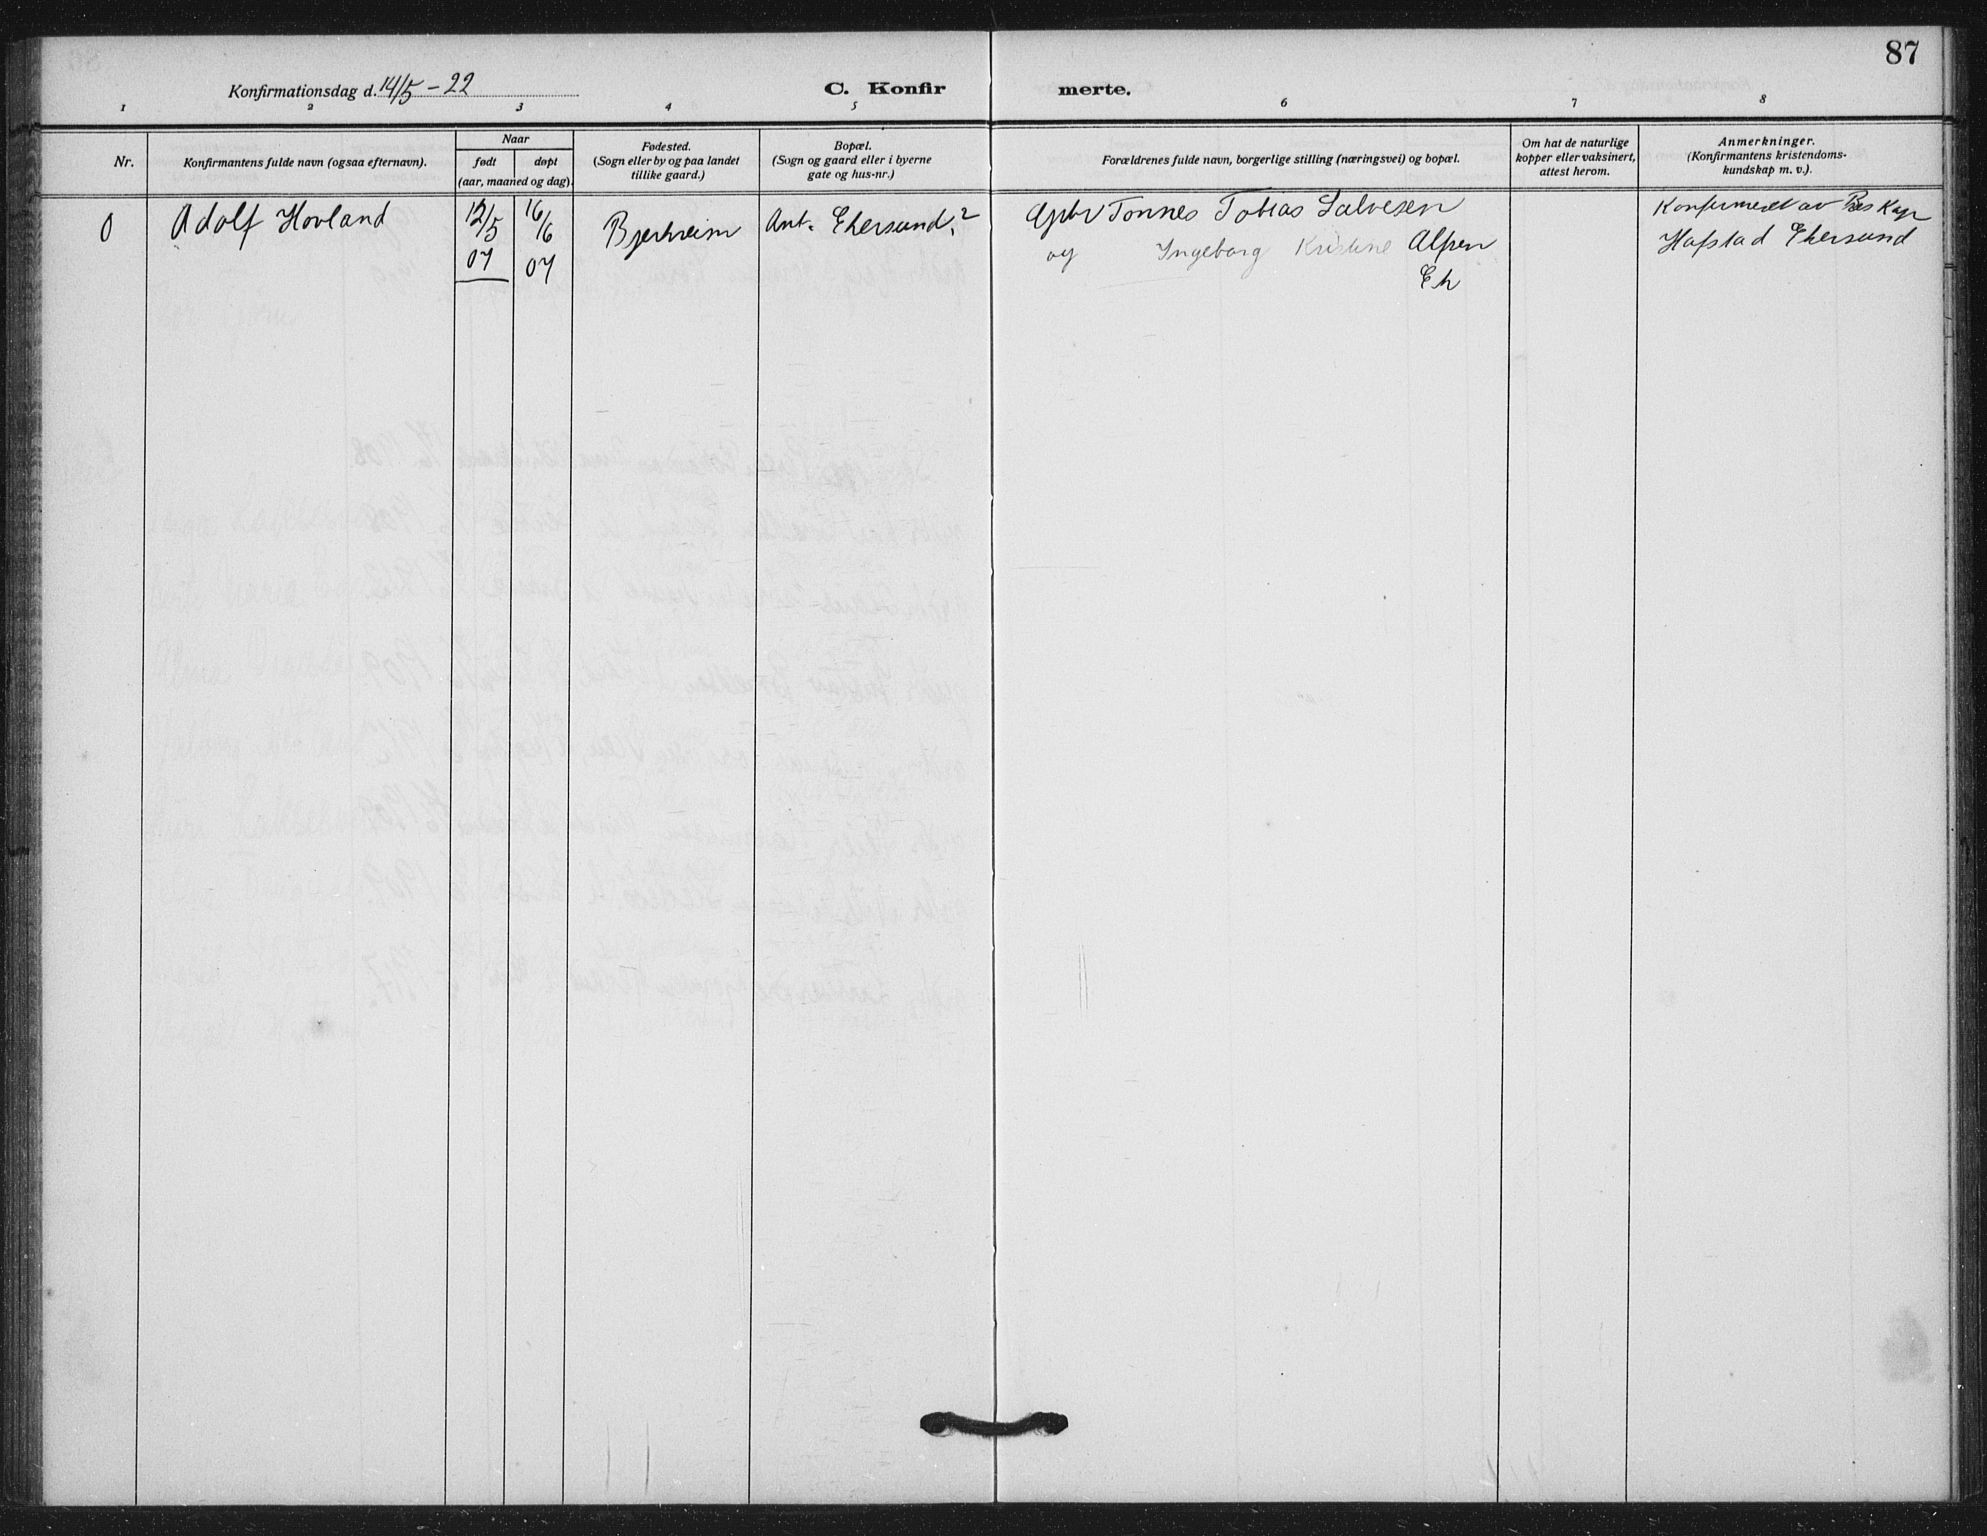 87
Konfirmationsdag d. 14/5 - 22
C. Konfirmerte.
1 2 3 4 5 6 7 8
Nr.
Konfirmantens fulde navn (ogsaa efternavn).
Naar
født
døpt
(aar, maaned og dag).
Fødested.
(Sogn eller by og paa landet
tillike gaard.)
Bopæl.
(Sogn og gaard eller i byerne
gate og hus-nr.)
Forældrenes fulde navn, borgerlige stilling (næringsvei) og bopæl.
Om hat de naturlige
kopper eller vaksinert,
attest herom.
Anmerkninger.
(Konfirmantens kristendoms-
kundskap m. v.).
0
Adolf Hovland
12/5
07
16/6
07
Bjerkreim
Ant. Ekersund?
Tønnes Tobias Salvesen
og Ingeborg Kristine
Ek
Konfirmeret av Res Kap
Hafstad Ekersund